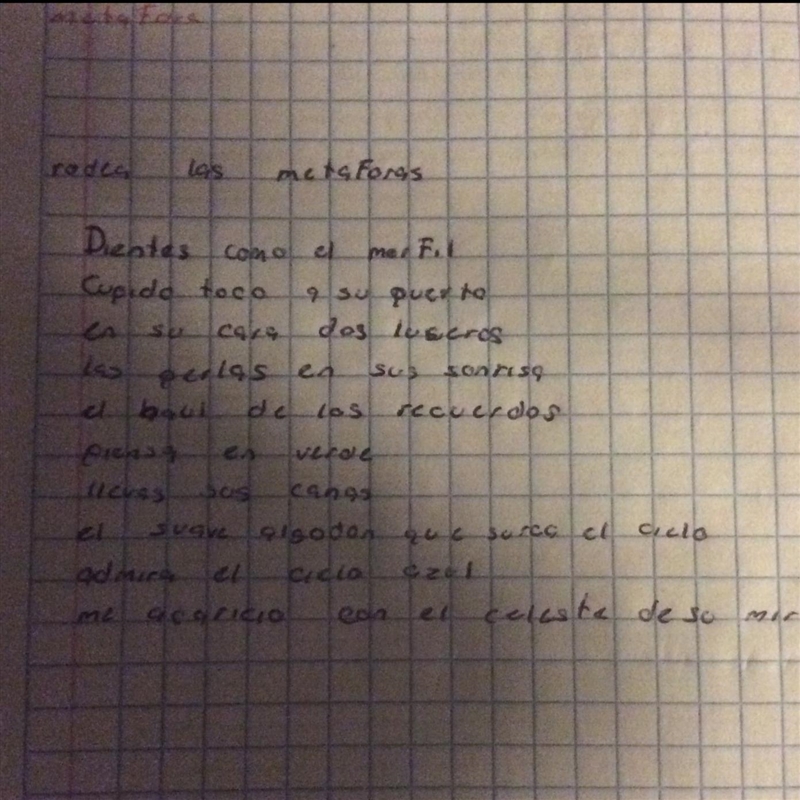 metafora
rodea las metaforas
Dientes como el marfil
Cupido toco a su puerta
en su cara dos luseros
las perlas en sus sonrisa
el baul de los recuerdos
piensa en verde
llevas sus canas
el suave algodon que surca el cielo
admira el cielo azul
me acaricio con el celeste de su mir